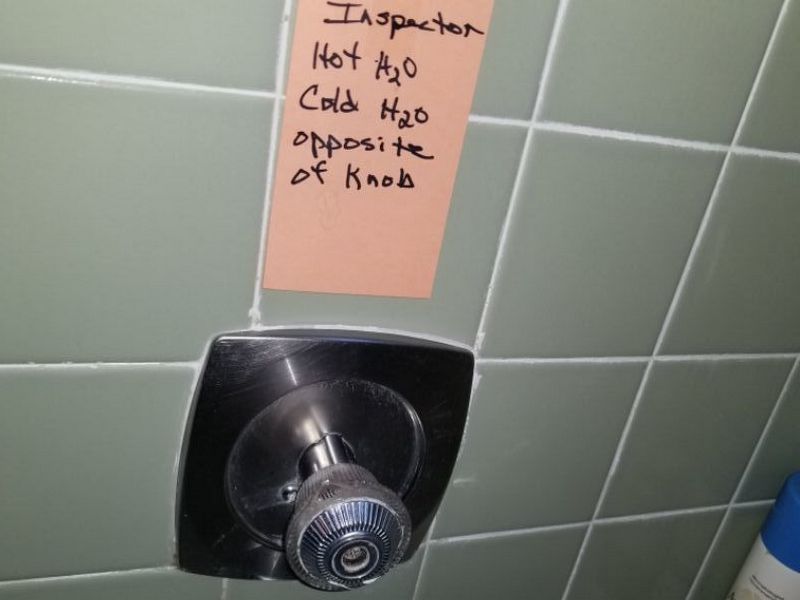 Inspector
Hot H₂O
Cold H₂O
opposite
of Knob